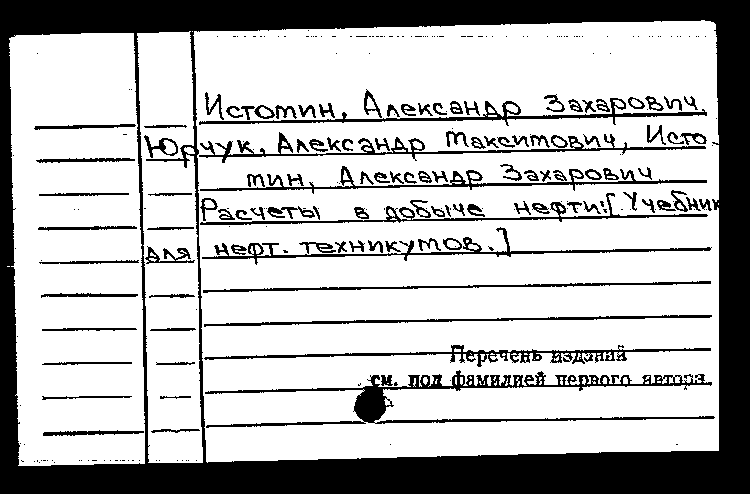 Истомин, Александр Захарович.
Юрчук, Александр Максимович, Исто-
мин, Александр Захарович
Расчеты в добыче нефти: [Учебник
для нефт. техникумов.]
Перечень изданий
см. под фамилией первого автора.